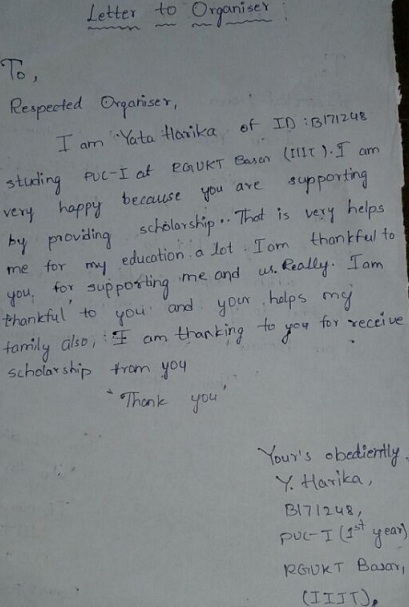 Letter to Organiser :
To,
Respected Organiser,
I am Yata Harika of ID : B171248
studing PUC-I at RGUKT Basar (IIIT). I am
very happy because you are supporting
by providing scholarship.. That is very helps
me for my education a lot. I am thankful to
you, for supporting me and us. Really. I am
thankful to you and your helps my
family also, I am thanking to you for receive
scholarship from you
"Thank you"
Your's obediently,
Y. Harika,
B171248,
PUC-I (1st year)
RGUKT Basar,
(IIIT),